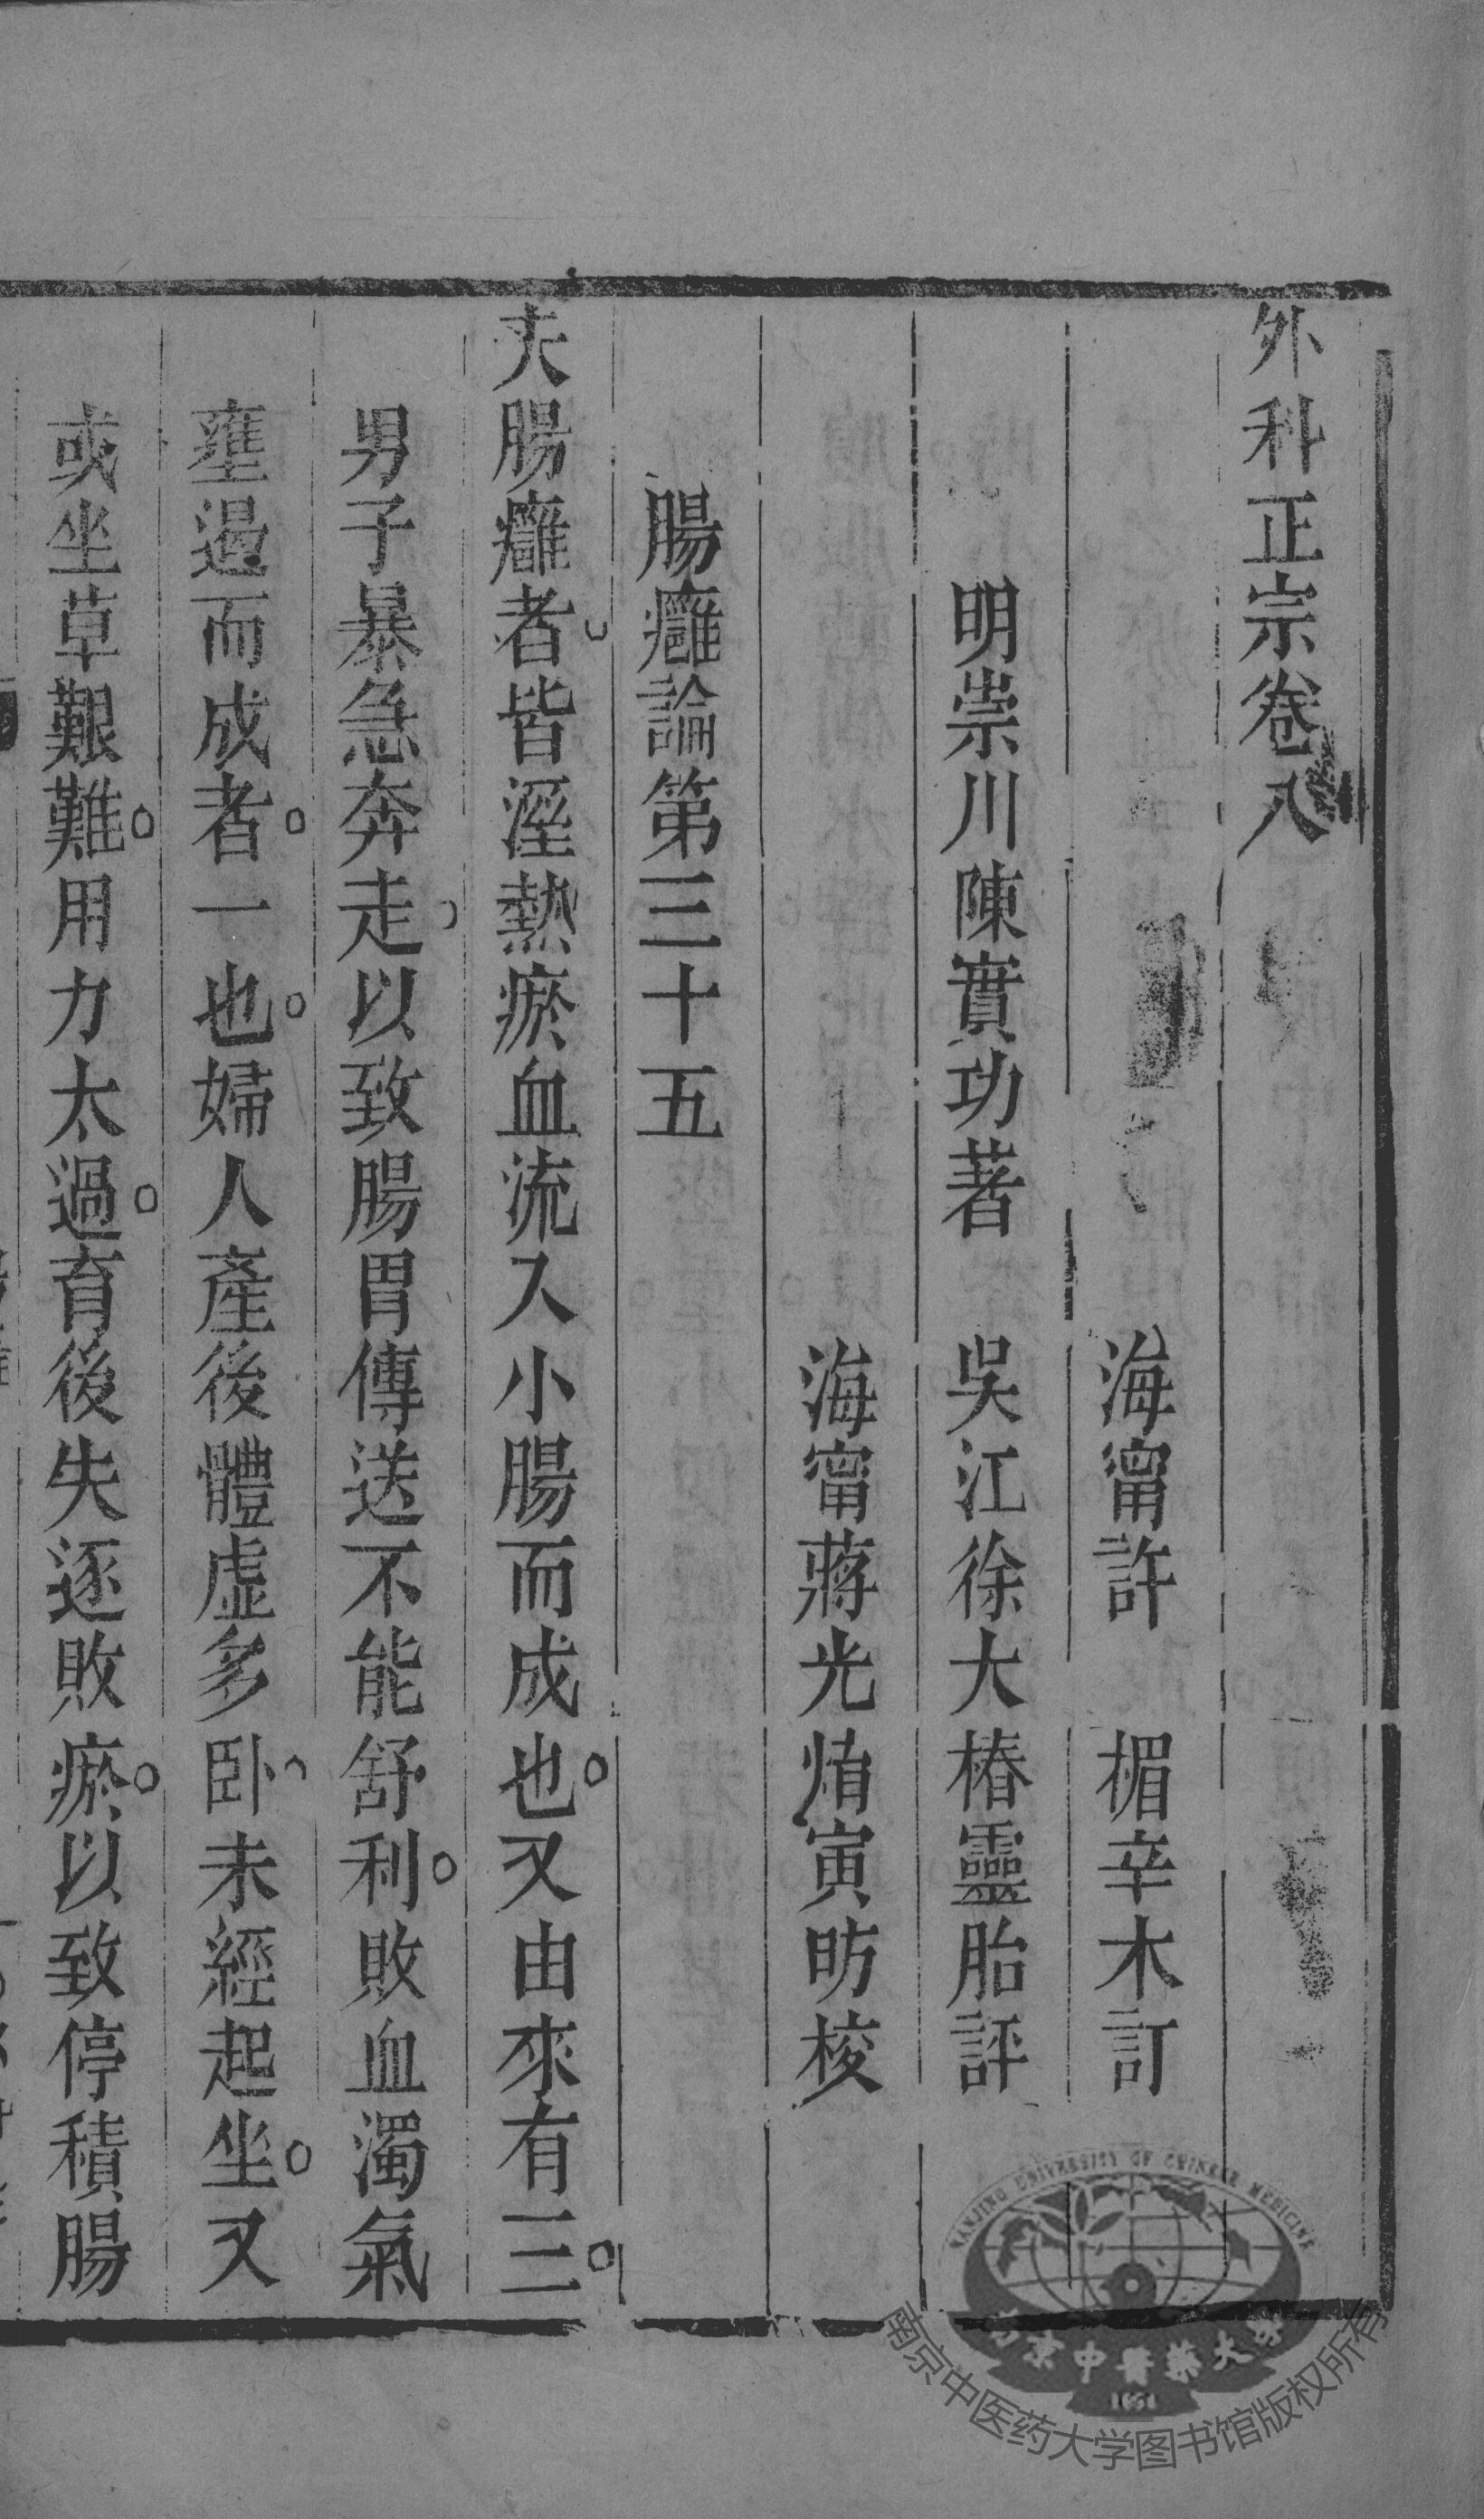 外科正宗卷八
海甯許 楣辛木訂
明崇川陳實功著 吳江徐大椿靈胎評
海甯蔣光焴寅昉梭
腸癰論第三十五
夫腸癰者皆溼熱瘀血流入小腸而成也又由來有三
男子暴急奔走以致腸胃傳送不能舒利敗血濁氣
壅遏而成者一也婦人產後體虛多卧未經起坐又
或坐草艱難用力太過育後失逐敗瘀以致停積腸
NANJING UNIVERSITY OF CHINESE MEDICINE
南京中醫藥大學
1954
南京中医药大学图书馆版权所有